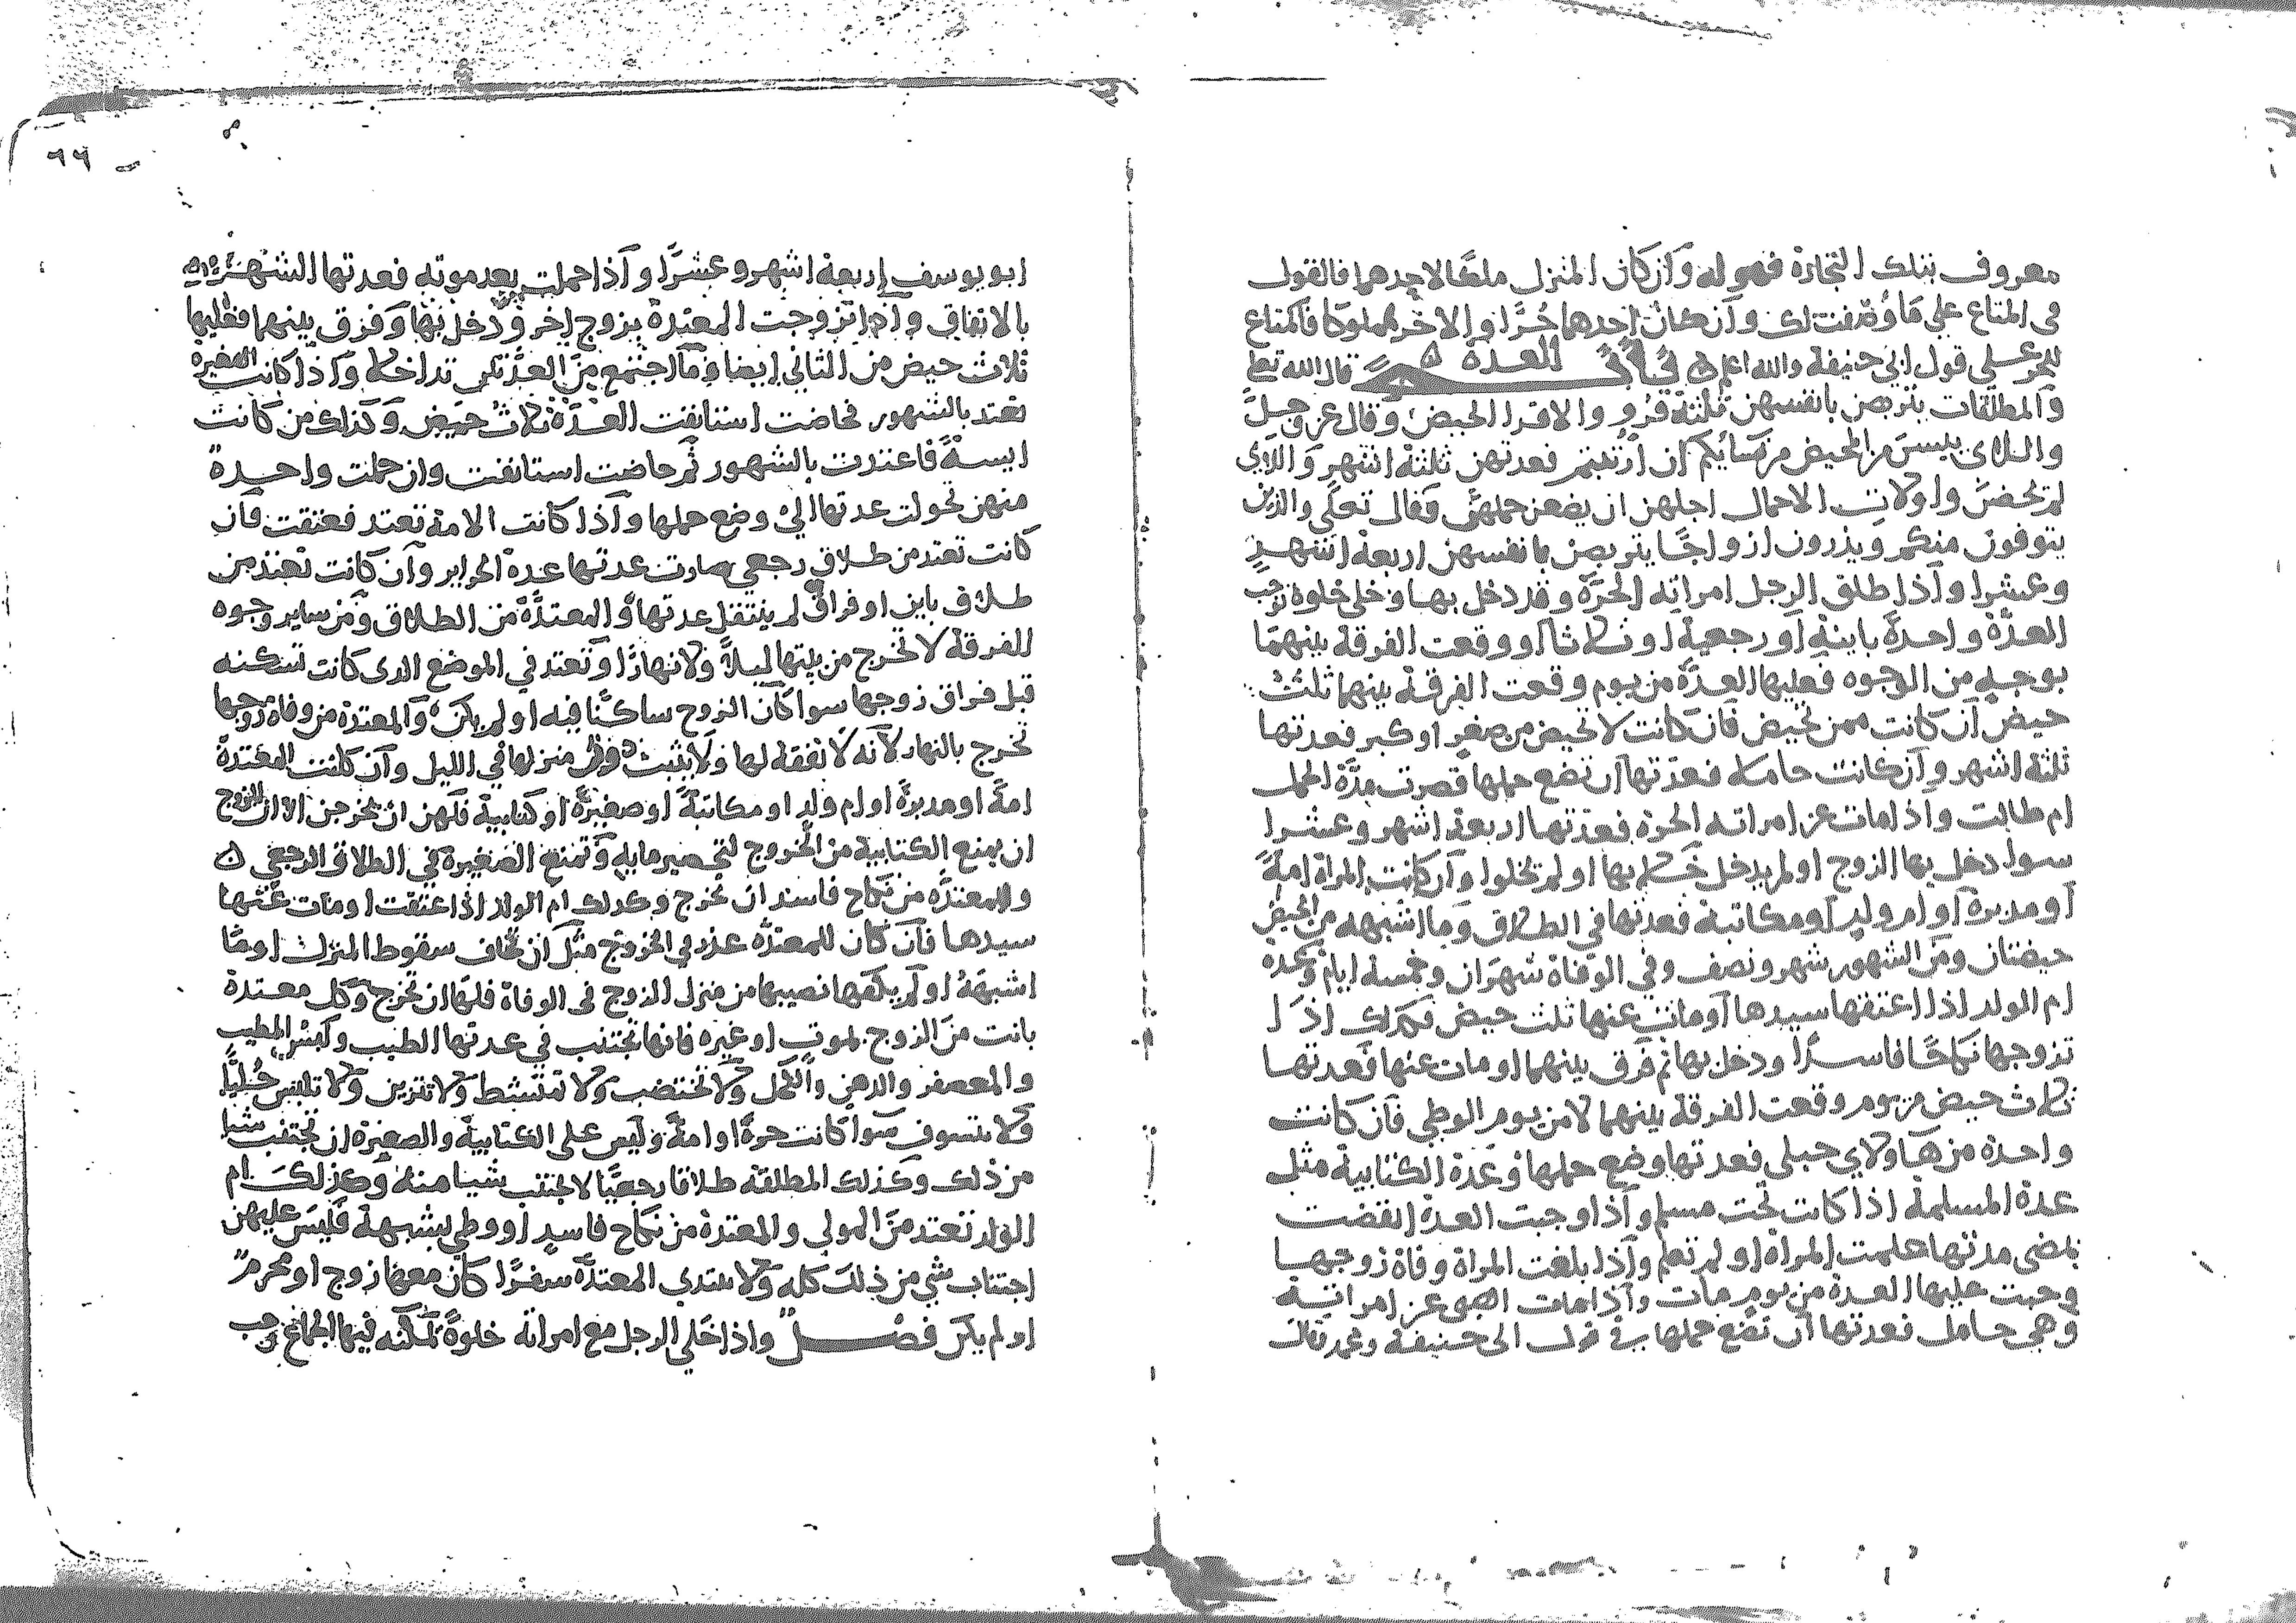 معروف بتلك التجارة فهو له وان كان المنزل ملكا لاحدهما فالقول
فى المتاع علي ما وصفت لك وان كان احدهما حُرًّا والاخر مملوكا فالمتاع
للحر علي قول ابي حنيفة والله اعلم باب العدة قال الله تعلى
والمطلقات يتربصن بانفسهن ثلثة قرو والاقرا الحيض وقال عز وجلَّ
واللاى يىسن من المحيض من نسائكم ان ارتبتم فعدتهن ثلثة اشهر واللاى
لم يحضن واولات الاحمال اجلهن ان يضعن حملهن وقال تعلى والذين
يتوفون منكم ويذرون ازواجًا يتربصن بانفسهن اربعة اشهر
وعشرا واذا طلق الرجل امراته الحرّة وقد دخل بها وخلى خلوة توجب
العدّة واحدةً باينة او رجعية او ثلاثا او وقعت الفرقة بينهما
بوجه من الوجوه فعليها العدّة من يوم وقعت الفرقة بينهما ثلث
حيض ان كانت ممن تحيض فان كانت لا تحيض من صغر او كبر فعدتها
ثلثة اشهر وان كانت حاملا فعدّتها ان تضع حملها قصرت مدّة الحمل
ام طالت واذا مات عن امراته الحرة فعدّتها اربعة اشهر وعشرا
سوا دخل بها الزوج او لم يدخل خلا بها او لم يخلوا وان كانت المراة امةً
او مدبرة او ام ولد او مكاتبة فعدتها في الطلاق وما اشبهه من الحيض
حيضتان ومن الشهور شهر ونصف وفي الوفاة شهران وخمسة ايام وعدة
ام الولد اذا اعتقها سيدها او مات عنها ثلث حيض فكذلك اذا
تزوجها نكاحًا فاسدًا ودخل بها ثم فرق بينهما او مات عنها فعدتها
ثلاث حيض من يوم وقعت الفرقة بينهما لا من يوم الوطي فان كانت
واحدة من هاولاي حبلى فعدتها وضع حملها وعدة الكتابية مثل
عدة المسلمة اذا كانت تحت مسلم واذا وجبت العدة انقضت
بمضى مدتها علمت المراة او لم تعلم واذا بلغت المراة وفاة زوجها
وجبت عليها العدة من يوم مات واذا مات الصبى عن امراته
وهي حامل فعدتها ان تضع حملها في قول ابى حنيفة ومحمد وقال
٦٦
ابو يوسف اربعة اشهر وعشرًا واذا حملت بعد موته فعدتها الشهور
بالاتفاق واذا تزوجت المعتدة بزوج اخر ودخل بها وفرق بينهما فعليها
ثلاث حيض من الثاني ايضا وما اجتمع من العدّتين تداخلا واذا كانت الصغيرة
تعتد بالشهور فحاضت استانفت العدّة ثلاث حيض وكذلك من كانت
ايسةً فاعتدت بالشهور ثم حاضت استانفت وان حملت واحدةٌ
منهن تحولت عدتها الي وضع حملها واذا كانت الامة تعتد فعتقت فان
كانت تعتد من طلاق رجعي صارت عدتها عدة الحراير وان كانت تعتد من
طلاق باين او فراق لم ينتقل عدتها والمعتدّة من الطلاق ومن ساير وجوه
الفرقة لا تخرج من بيتها ليلاً ولا نهارًا وتعتد في الموضع الدى كانت تسكنه
قبل فراق زوجها سوا كان الزوج ساكنًا فيه او لم يكن والمعتدة من وفاة زوجها
تخرج بالنهار لانه لا نفقة لها ولا تبيت منزلها في الليل وان كانت المعتدة
امةً او مدبرةً او ام ولد او مكاتبةً او صغيرةً او كتابية فلهن ان يخرجن الا ان للزوج
ان يمنع الكتابية من الخروج لتحصير مايه وتمنع الصغيرة في الطلاق الرجعي
وللمعتدّه من نكاح فاسد ان تخرج وكدلك ام الولد اذا اعتقت او مات عنها
سيدها فان كان للمعتدّه عذر في الخروج مثل ان تخاف سقوط المنزل او ما
اشبههُ او لم يكفها نصيبها من منزل الزوج فى الوفاة فلها ان تخرج وكل معتدة
بانت من الزوج بموت او غيره فانها تجتنب في عدتها الطيب ولبس المطيب
والمعصفر والدهن والكحل ولا تختضب ولا تمتشط ولا تتزين ولا تلبس حُليًّا
ولا تتسوف سوا كانت حرةً او امةً وليس على الكتابية والصغيرة ان تجتنب شيا
من ذلك وكذلك المطلقة طلاقا رجعيًا لا تجتنب شيا منه وكذلك ام
الولد تعتد من المولى والمعتدة من نكاح فاسدٍ او وطي بشبهة فليس عليهن
اجتناب شي من ذلك كله ولا تبتدي المعتدّة سفرًا كان معها زوج او محرمٌ
او لم يكن فصل واذا خلي الرجل مع امراته خلوةً يمكنه فيها الجماع وجب